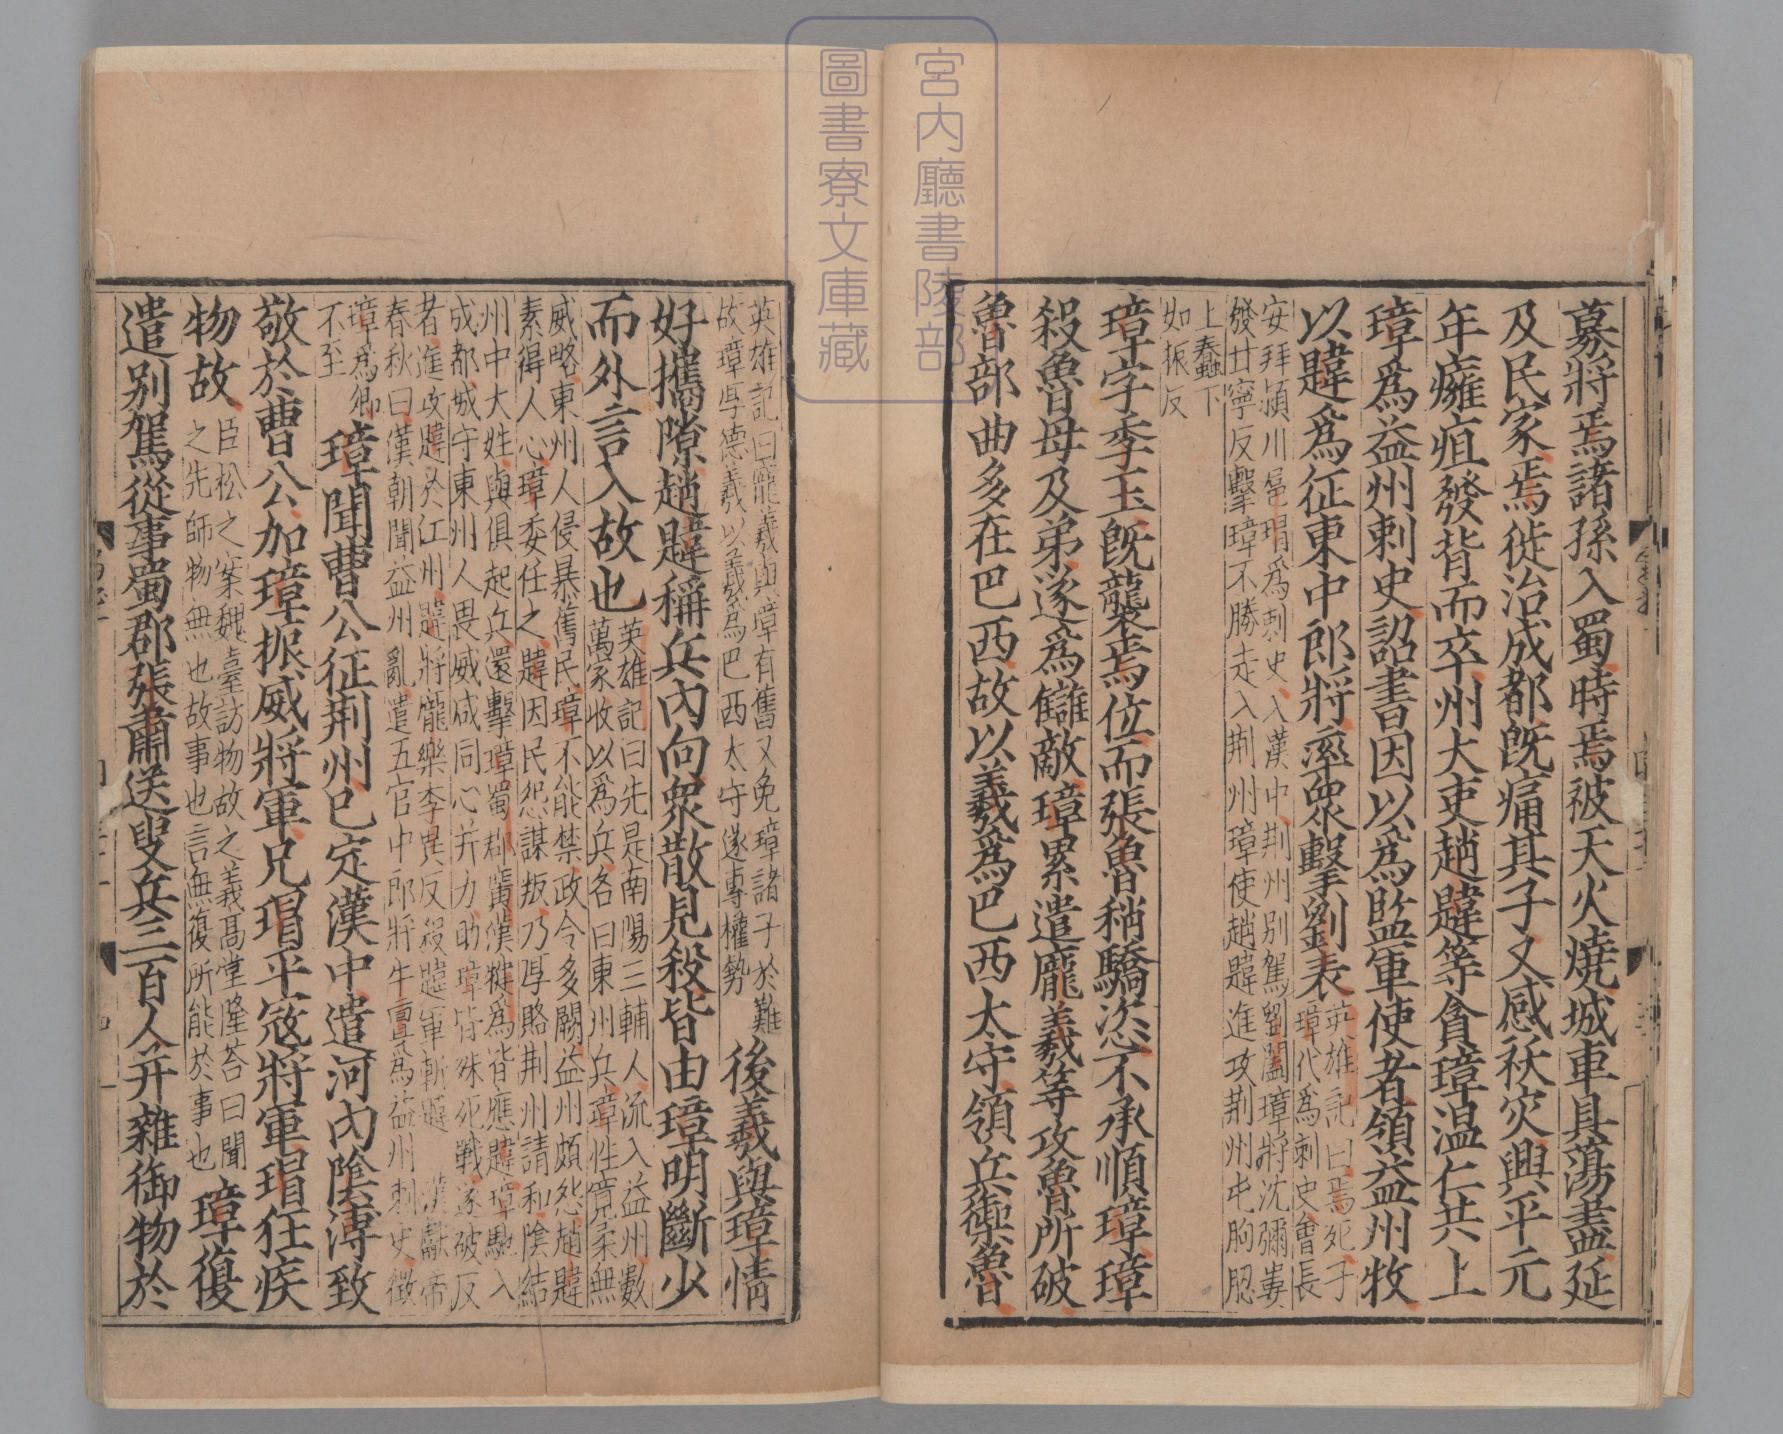 募將焉諸孫入蜀時焉被天火燒城車具蕩盡延
及民家焉徙治成都既痛其子又感祅灾興平元
年癰疽發背而卒州大吏趙韙等貪璋温仁共上
璋爲益州刺史詔書因以爲監軍使者領益州牧
以韙爲征東中郎將率衆擊劉表
英雄記曰焉死子
璋代爲刺史會長
安拜潁川扈瑁爲刺史入漢中荆州别駕劉闔璋將沈彌婁
發甘寧反擊璋不勝走入荆州璋使趙韙進攻荆州屯朐䏰
上蠢下
如振反
璋字季玉既襲焉位而張魯稍驕恣不承順璋璋
殺魯母及弟遂爲讎敵璋累遣龐羲等攻魯所破
魯部曲多在巴西故以羲爲巴西太守領兵禦魯
英雄記曰龐羲與璋有舊又免璋諸子於難
故璋厚德羲以羲爲巴西太守遂專權勢
後羲與璋情
好攜隙趙韙稱兵內向衆散見殺皆由璋明斷少
而外言入故也
英雄記曰先是南陽三輔人流入益州數
萬家收以爲兵名曰東州兵璋性寬柔無
威略東州人侵暴舊民璋不能禁政令多闕益州頗怨趙韙
素得人心璋委任之韙因民怨謀叛乃厚賂荆州請和陰結
州中大姓與俱起兵還擊璋蜀郡廣漢犍爲皆應韙璋馳入
成都城守東州人畏威咸同心并力助璋皆殊死戰遂破反
者進攻韙於江州韙將龐樂李異反殺韙軍斬韙 漢獻帝
春秋曰漢朝聞益州亂遣五官中郎將牛亶爲益州刺史徵
璋爲卿
不至
璋聞曹公征荆州已定漢中遣河內陰溥致
敬於曹公加璋振威將軍兄瑁平寇將軍瑁狂疾
物故
臣松之案魏臺訪物故之義高堂隆荅曰聞
之先師物無也故事也言無復所能於事也
璋復
遣别駕從事蜀郡張肅送叟兵三百人并雜御物於
宮内廳書陵部
圖書寮文庫藏